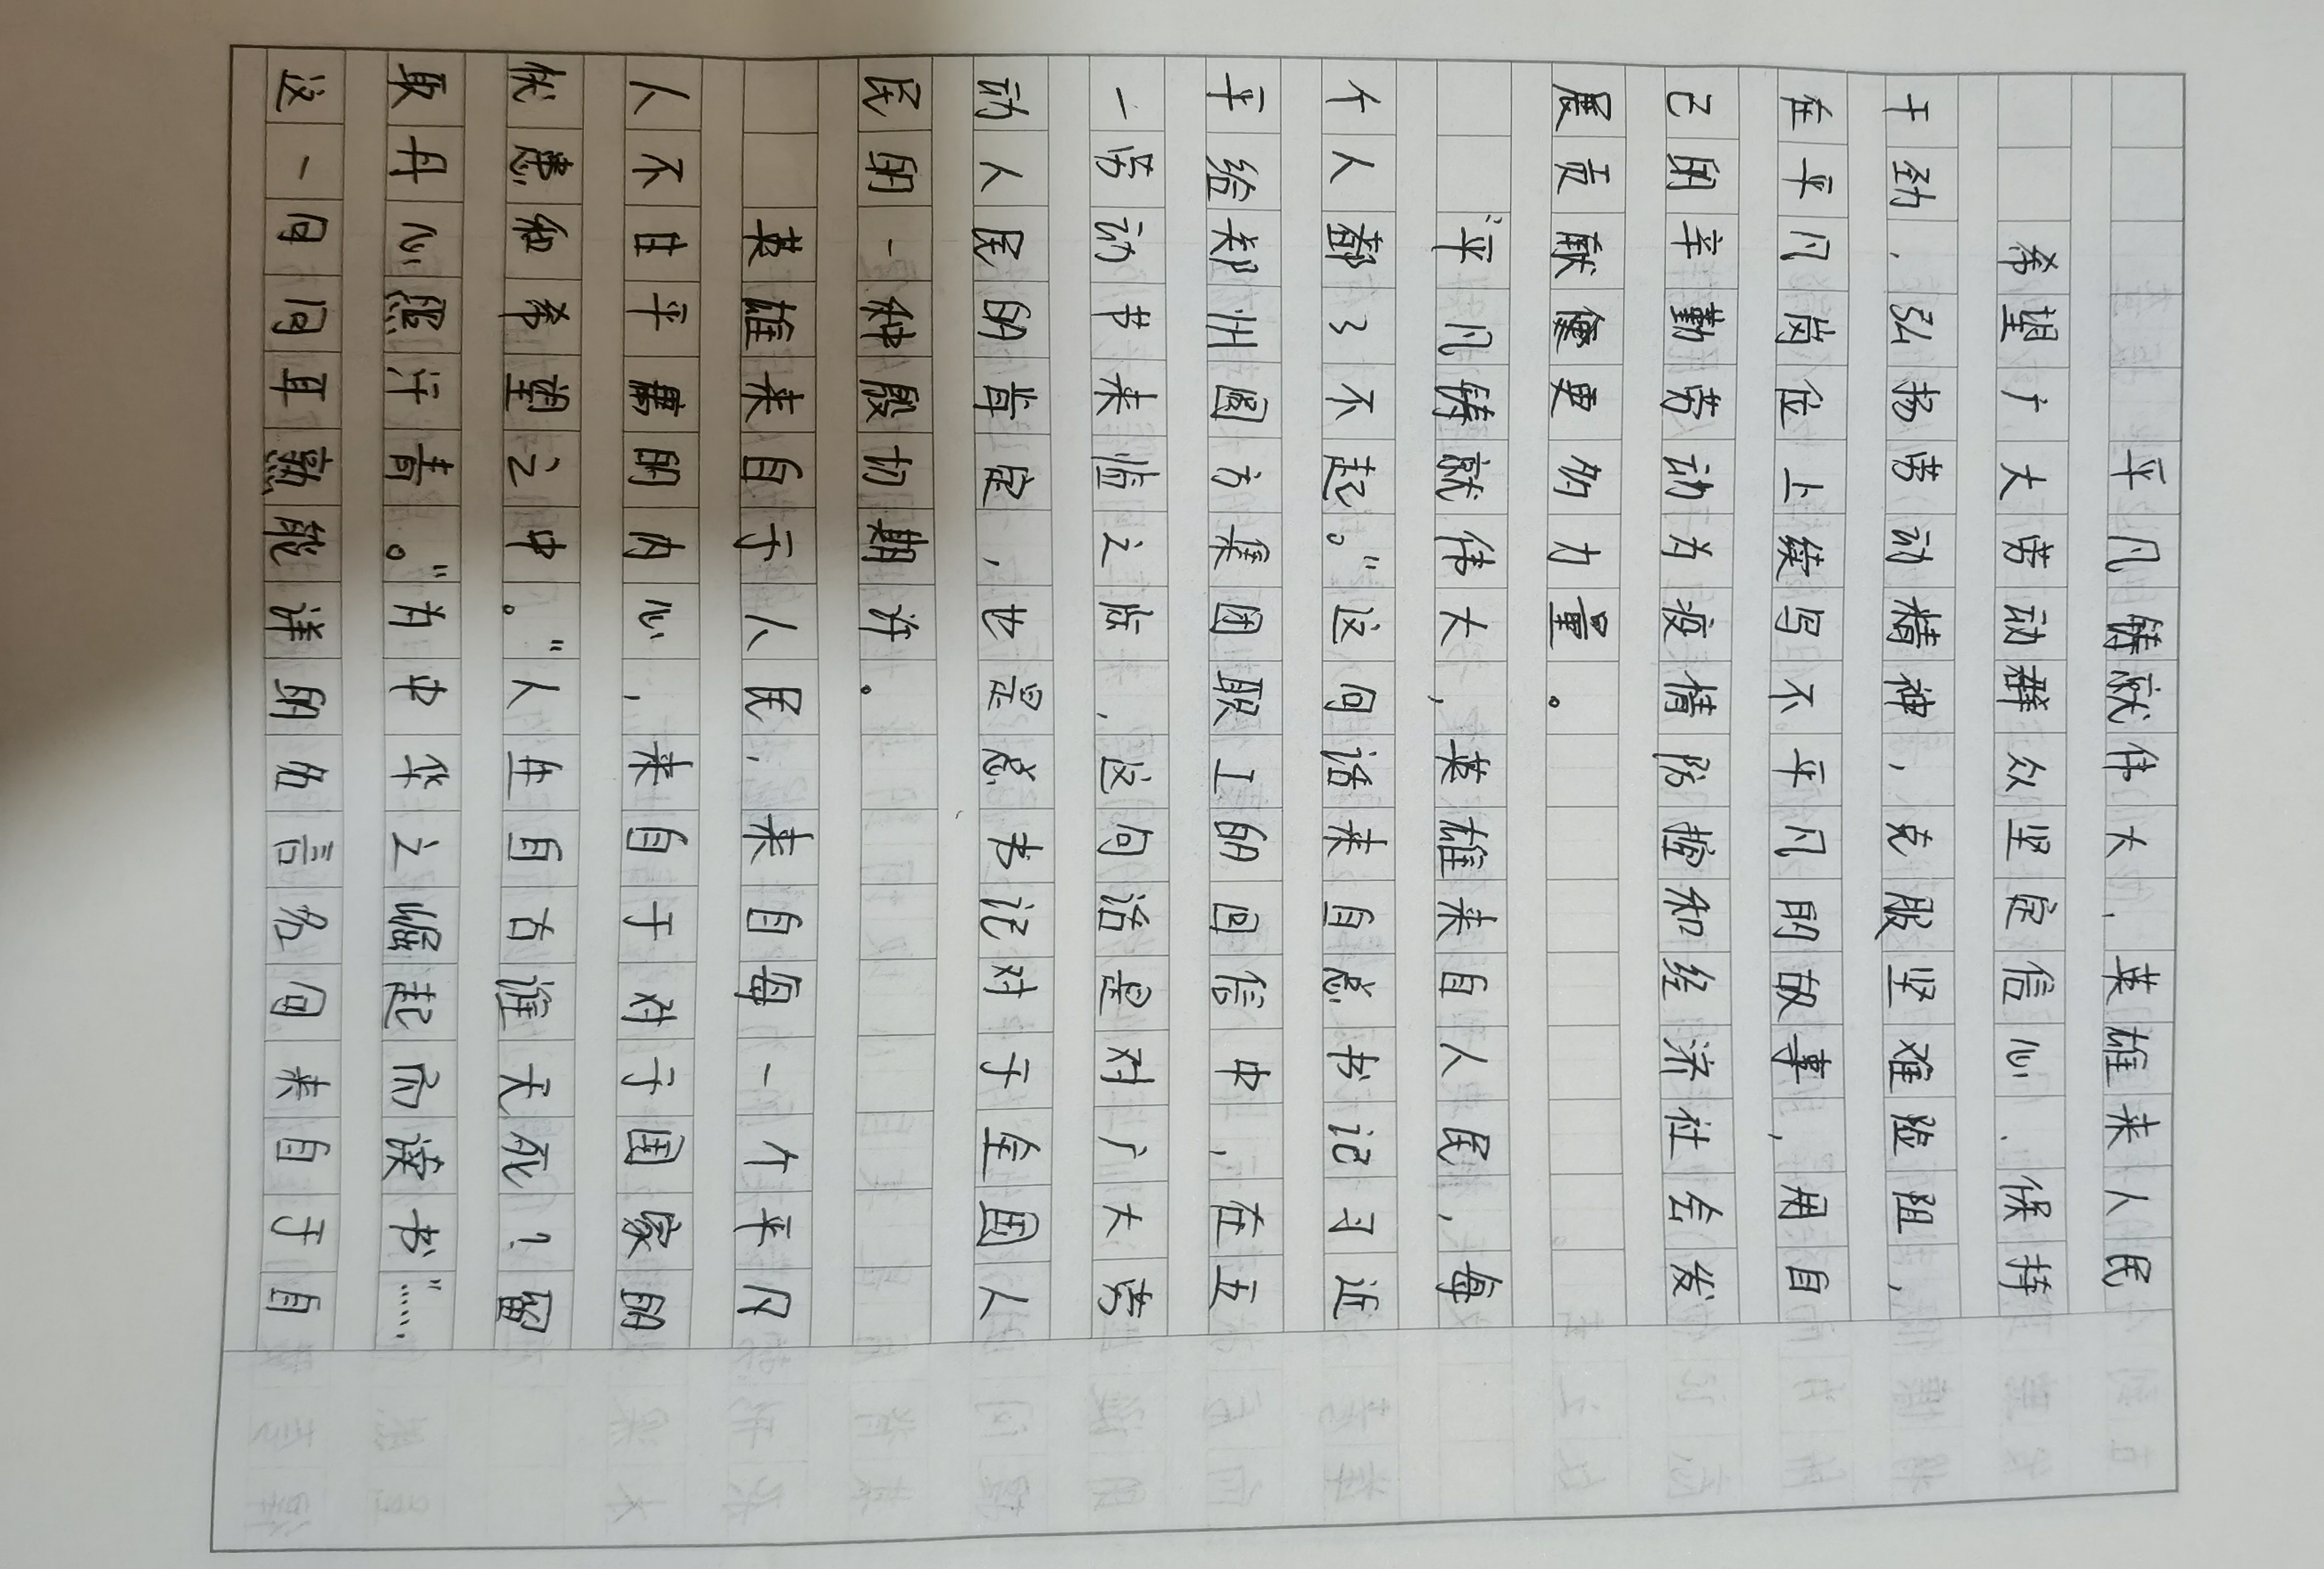 平凡铸就伟大，英雄来人民
希望广大劳动群众坚定信心、保持
干劲，弘扬劳动精神，克服坚难险阻，
在平凡岗位上续写不平凡的故事，用自
己的辛勤劳动为疫情防控和经济社会发
展贡献更多力量。
“平凡铸就伟大，英雄来自人民，每
个人都了不起。”这句话来自总书记习近
平给郑州圆方集团职工的回信中，在五
一劳动节来临之际，这句话是对广大劳
动人民的肯定，也是总书记对于全国人
民的一种殷切期许。
英雄来自于人民，来自每一个平凡
人不甘平庸的内心，来自于对于国家的
忧虑和希望之中。”人生自古谁无死？留
取丹心照汗青。”为中华之崛起而读书”……
这一句句耳熟能详的名言名句来自于自